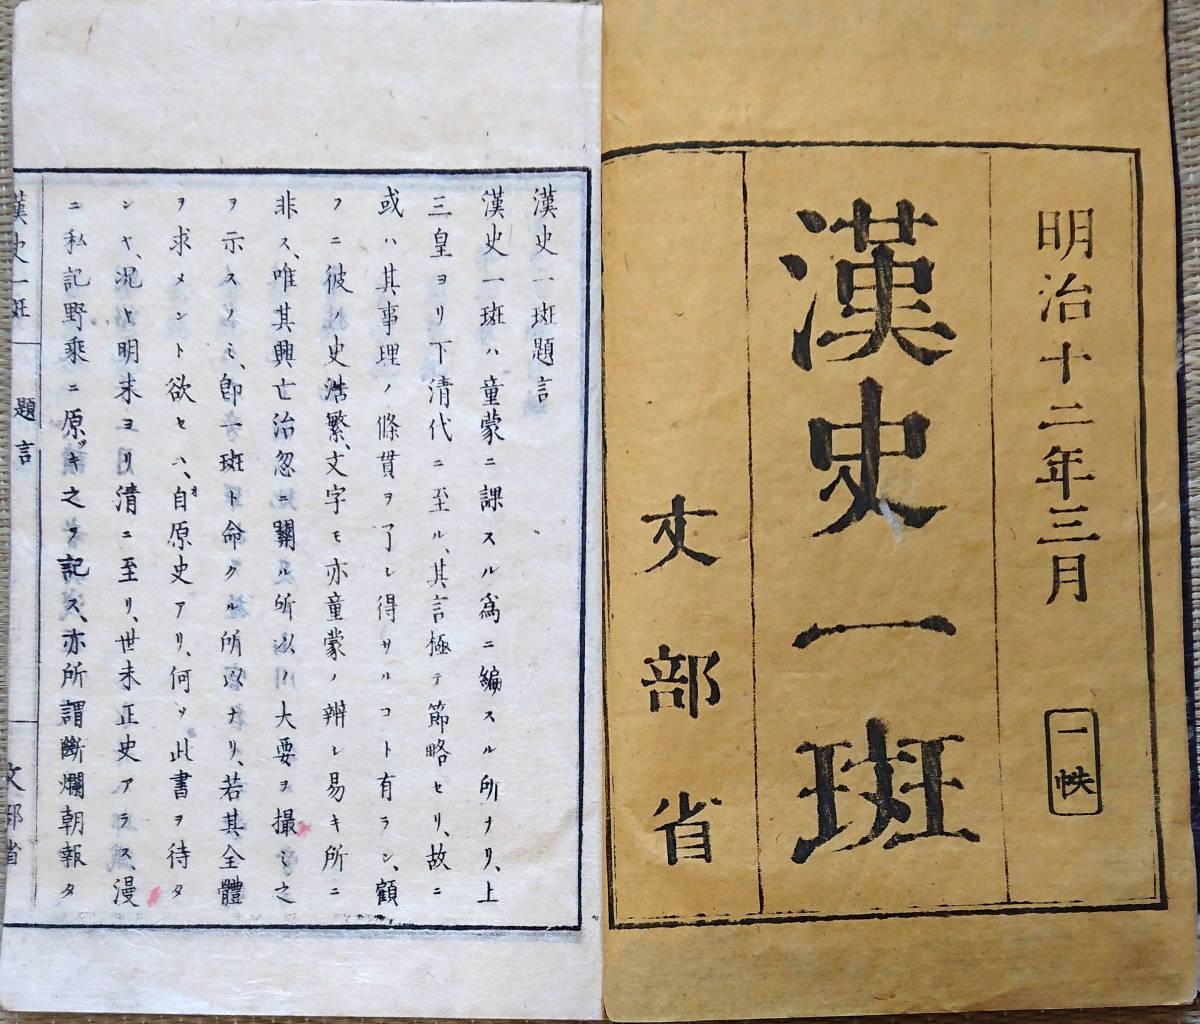 明治十二年三月
一帙
漢史一斑
文部省
漢史一斑題言
漢史一斑ハ童蒙ニ課スル為ニ編スル所ナリ、上
三皇ヨリ下清代ニ至ル、其言極テ節略セリ、故ニ
或ハ其事理ノ條貫ヲ了シ得サルコト有ラン、顧
フニ彼ノ史浩繁、文字モ亦童蒙ノ辨シ易キ所ニ
非ス、唯其興亡治忽ニ關ル所以ノ大要ヲ撮ミ之
ヲ示スノミ、即一斑ト命クル所以ナリ、若其全體
ヲ求メント欲セハ、自原史アリ、何ソ此書ヲ待タ
ンヤ、況ヤ明末ヨリ清ニ至リ、世未正史アラス、漫
ニ私記野乘ニ原ツキ之ヲ記ス、亦所謂斷爛朝報タ
漢史一斑
題言
文部省